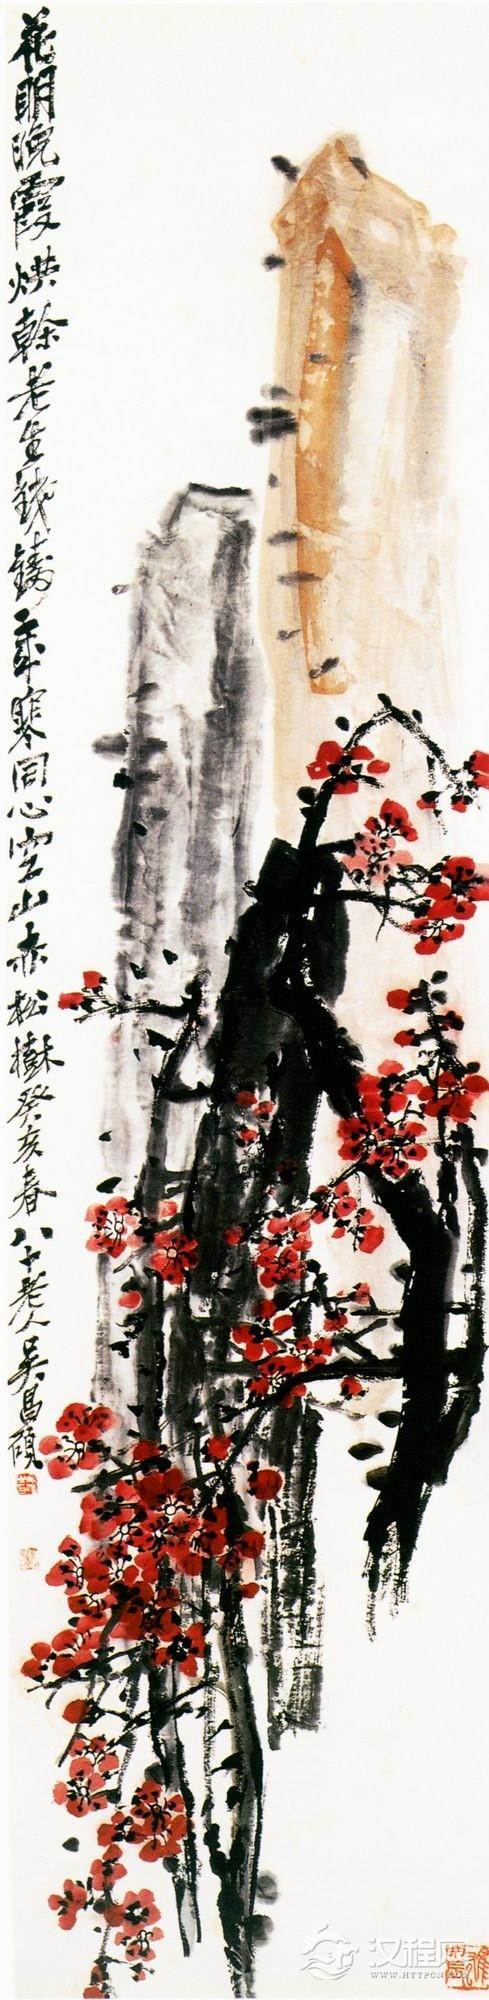 花明晚霞烘幹老生鐵鑄歲寒同心空山赤松樹癸亥春八十老人吳昌碩
汉程网
WWW.HTTPCN.COM